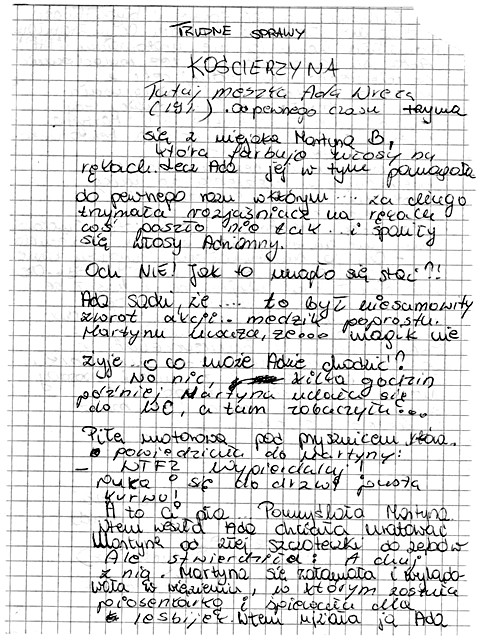 TRUDNE SPRAWY
KOŚCIERZYNA
Tutaj meszka Ada Wreca
(19l.). Od pewnego czasu trzyma
się z niejaką Martyną B,
która farbuje włosy na
rękach. Lecz Ada jej w tym pomagała
do pewnego razu w którym.... za długo
trzymała rozjaśniacz na rękach
coś poszło nie tak...i spaliły
się włosy Adrianny.
Och NIE! Jak to mogło się stać?!
Ada sądzi, że.... to był niesamowity
zwrot akcji.. poprostu.
Martyna uważa, że.... magik nie
żyje..o co może Adzie chodzić?
No nic, kilka godzin
później Martyna udała się
do WC, a tam zobaczyła....
Piłę motorową pod prysznicem która
powiedziała do Martyny:
- WTF? Wypierdalaj!
Puka się do drzwi pusta
kurwo!
A to ci piła... Pomyślała Martyna
Wtem weszła Ada chciała uratować
Martynę od złej szczoteczki do zębów
Ale stwierdziła: A chuj
z nią. Martyna się załamała i wylądo-
wała w więzieniu, w którym została
piosenkarką i śpiewała dla
lesbijek. Wtem ją Ada